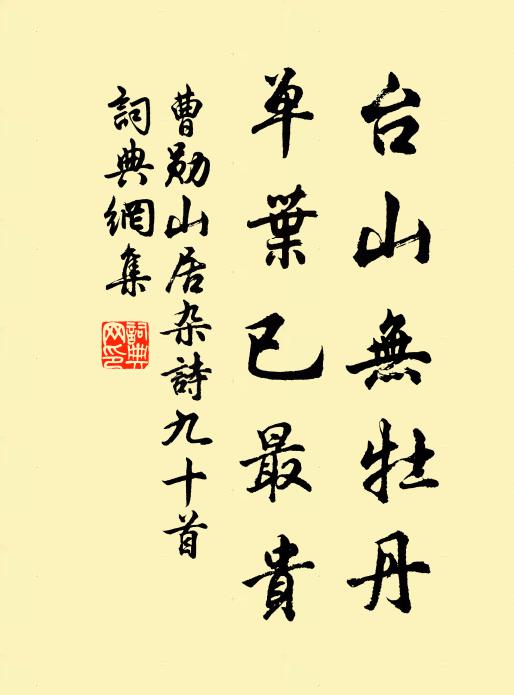 台山無牡丹
单葉已最貴
曹勋山居杂詩九十首
詞典網集
詞典網印